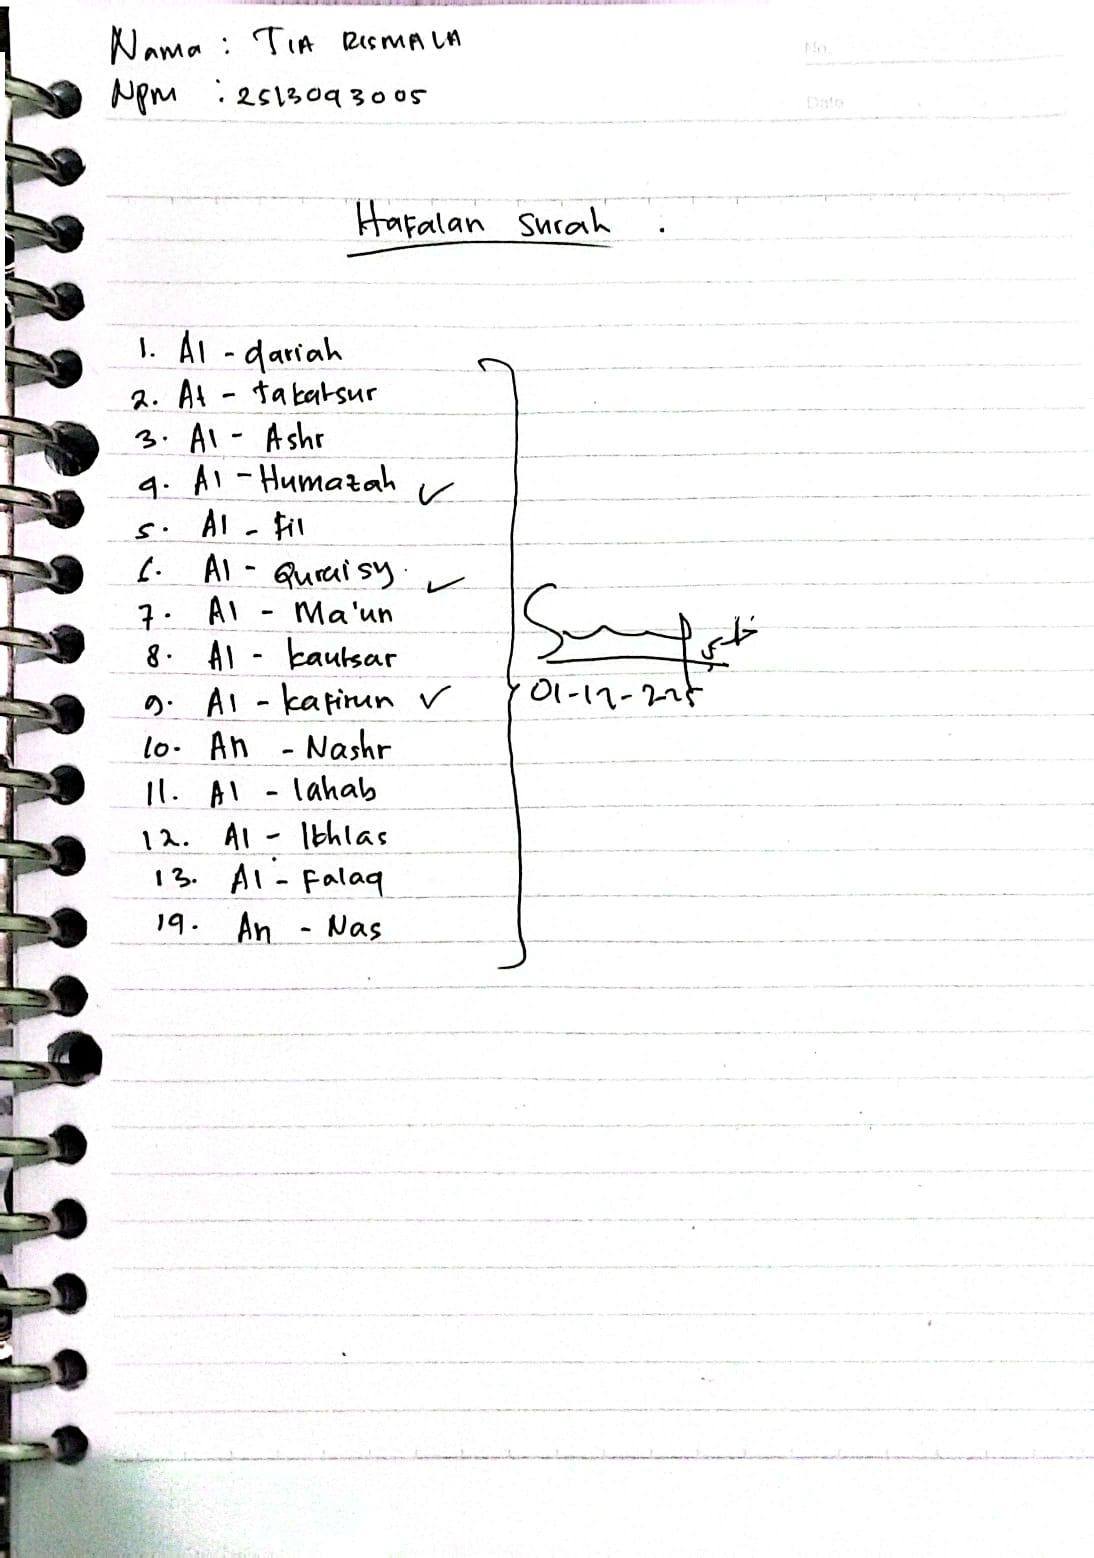 Nama : TIA RISMALA
Npm : 2513093005
No.
Date
Hafalan surah .
1. Al - qariah
2. At - takatsur
3. Al - Ashr
4. Al - Humazah ✓
5. Al - fil
6. Al - Quraisy. ✓
7. Al - Ma'un
8. Al - kautsar
9. Al - kafirun ✓
01-12-225
10. An - Nashr
11. Al - lahab
12. Al - Ikhlas
13. Al - Falaq
14. An - Nas